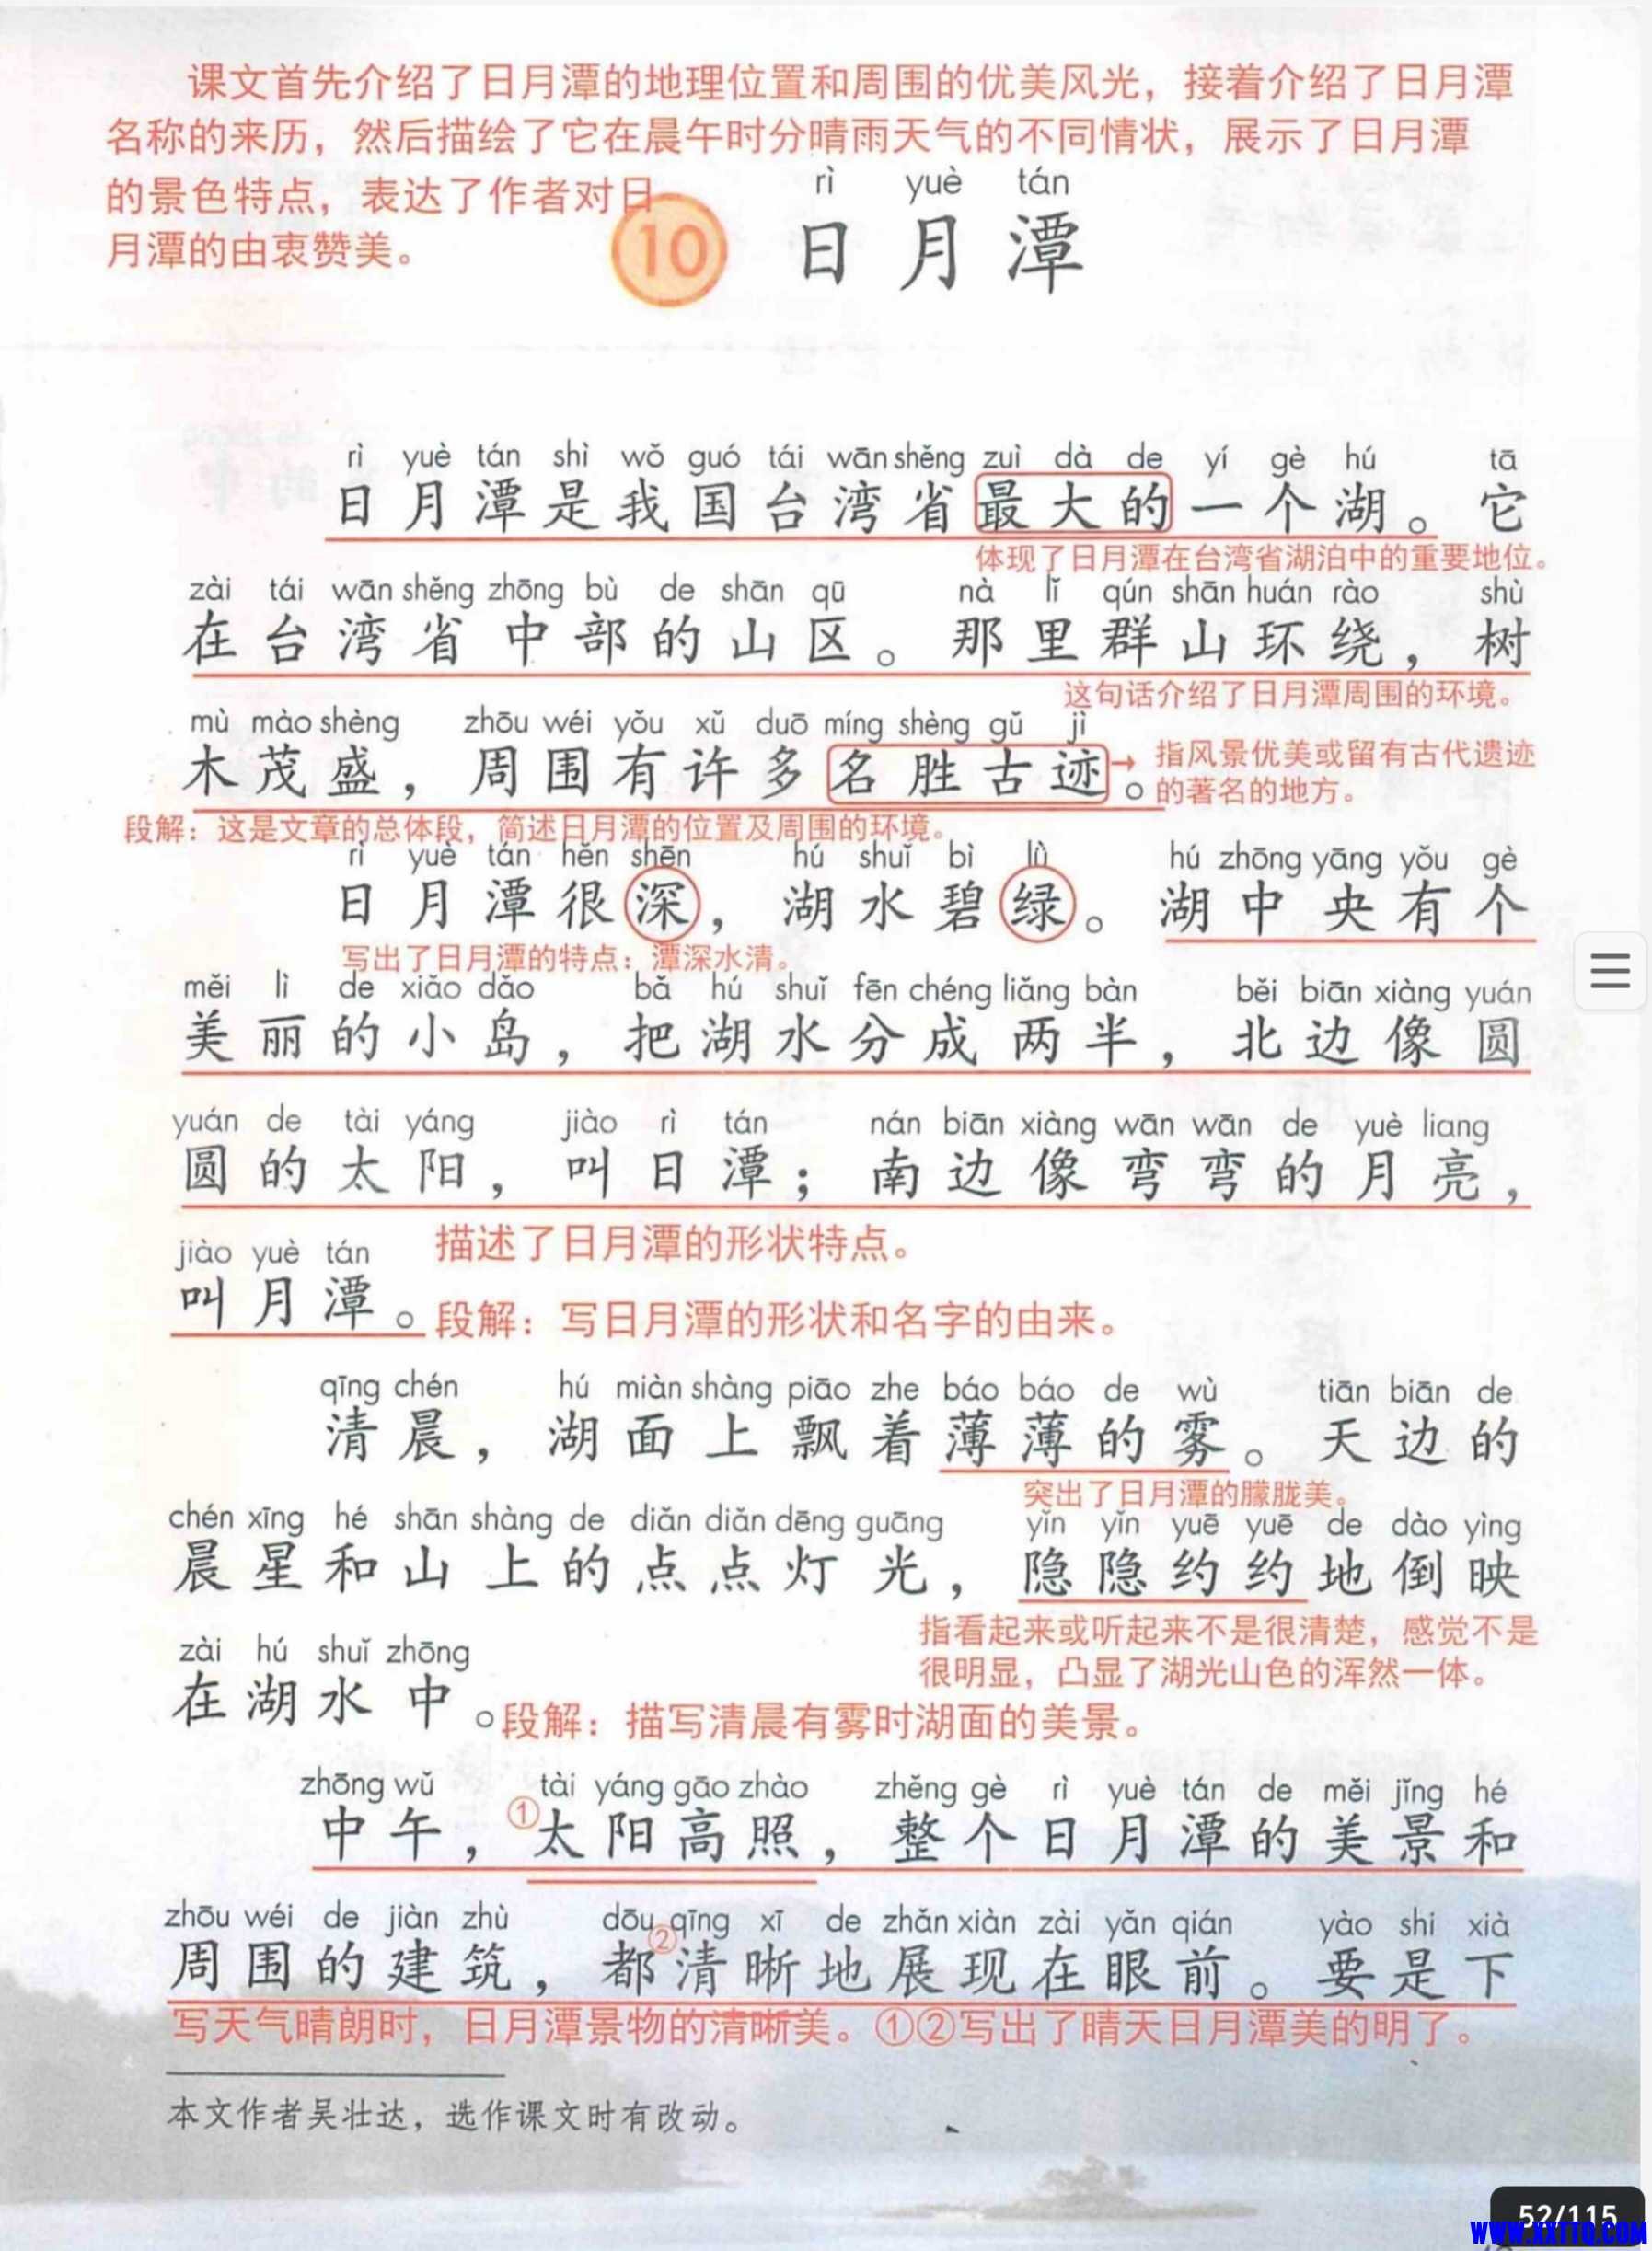 课文首先介绍了日月潭的地理位置和周围的优美风光，接着介绍了日月潭
名称的来历，然后描绘了它在晨午时分晴雨天气的不同情状，展示了日月潭
的景色特点，表达了作者对日
月潭的由衷赞美。
rì yuè tán
10 日月潭
rì yuè tán shì wǒ guó tái wān shěng zuì dà de yí gè hú tā
日月潭是我国台湾省最大的一个湖。它
体现了日月潭在台湾省湖泊中的重要地位。
zài tái wān shěng zhōng bù de shān qū nà lǐ qún shān huán rào shù
在台湾省中部的山区。那里群山环绕，树
这句话介绍了日月潭周围的环境。
mù mào shèng zhōu wéi yǒu xǔ duō míng shèng gǔ jì
木茂盛，周围有许多名胜古迹。
→指风景优美或留有古代遗迹
的著名的地方。
段解：这是文章的总体段，简述日月潭的位置及周围的环境。
rì yuè tán hěn shēn hú shuǐ bì lǜ hú zhōng yāng yǒu gè
日月潭很深，湖水碧绿。湖中央有个
写出了日月潭的特点：潭深水清。
měi lì de xiǎo dǎo bǎ hú shuǐ fēn chéng liǎng bàn běi biān xiàng yuán
美丽的小岛，把湖水分成两半，北边像圆
yuán de tài yáng jiào rì tán nán biān xiàng wān wān de yuè liang
圆的太阳，叫日潭；南边像弯弯的月亮，
描述了日月潭的形状特点。
jiào yuè tán
叫月潭。
段解：写日月潭的形状和名字的由来。
qīng chén hú miàn shàng piāo zhe báo báo de wù tiān biān de
清晨，湖面上飘着薄薄的雾。天边的
突出了日月潭的朦胧美。
chén xīng hé shān shàng de diǎn diǎn dēng guāng yǐn yǐn yuē yuē de dào yìng
晨星和山上的点点灯光，隐隐约约地倒映
指看起来或听起来不是很清楚，感觉不是
很明显，凸显了湖光山色的浑然一体。
zài hú shuǐ zhōng
在湖水中。
段解：描写清晨有雾时湖面的美景。
zhōng wǔ tài yáng gāo zhào zhěng gè rì yuè tán de měi jǐng hé
中午，①太阳高照，整个日月潭的美景和
zhōu wéi de jiàn zhù dōu qīng xī de zhǎn xiàn zài yǎn qián yào shi xià
周围的建筑，都②清晰地展现在眼前。要是下
写天气晴朗时，日月潭景物的清晰美。①②写出了晴天日月潭美的明了。
本文作者吴壮达，选作课文时有改动。
52/115
WWW.XXTTQ.COM